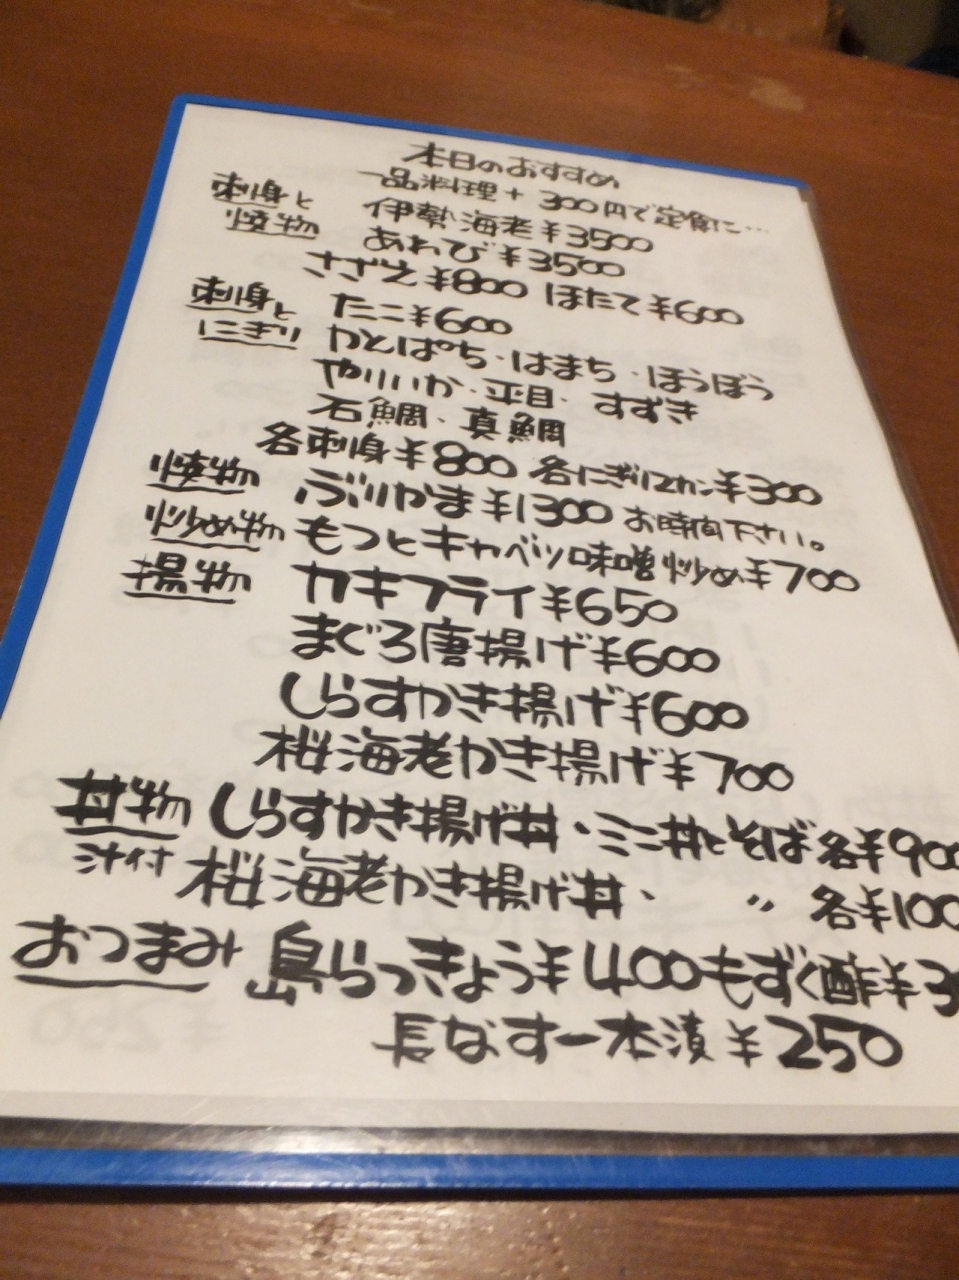 本日のおすすめ
一品料理+300円で定食に…
刺身と 伊勢海老¥3500
焼物 あわび¥3500
さざえ¥800 ほたて¥600
刺身と たこ¥600
にぎり かんぱち・はまち・ほうぼう
やりいか・平目・すずき
石鯛・真鯛
各刺身¥800 各にぎり2カン¥300
焼物 ぶりかま¥1300 お時間下さい。
炒め物 もつとキャベツ味噌炒め¥700
揚物 カキフライ¥650
まぐろ唐揚げ¥600
しらすかき揚げ¥600
桜海老かき揚げ¥700
丼物 しらすかき揚げ丼・ミニ丼とそば各¥900
汁付 桜海老かき揚げ丼・ 〃 各¥100
おつまみ 島らっきょう¥400もずく酢¥3
長なす一本漬¥250